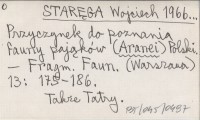 STARĘGA Wojciech 1966...
Przyczynek do poznania
fauny pająków (Aranei) Polski.
— Fragm. Faun. (Warszawa)
13: 175-186.
Także Tatry.